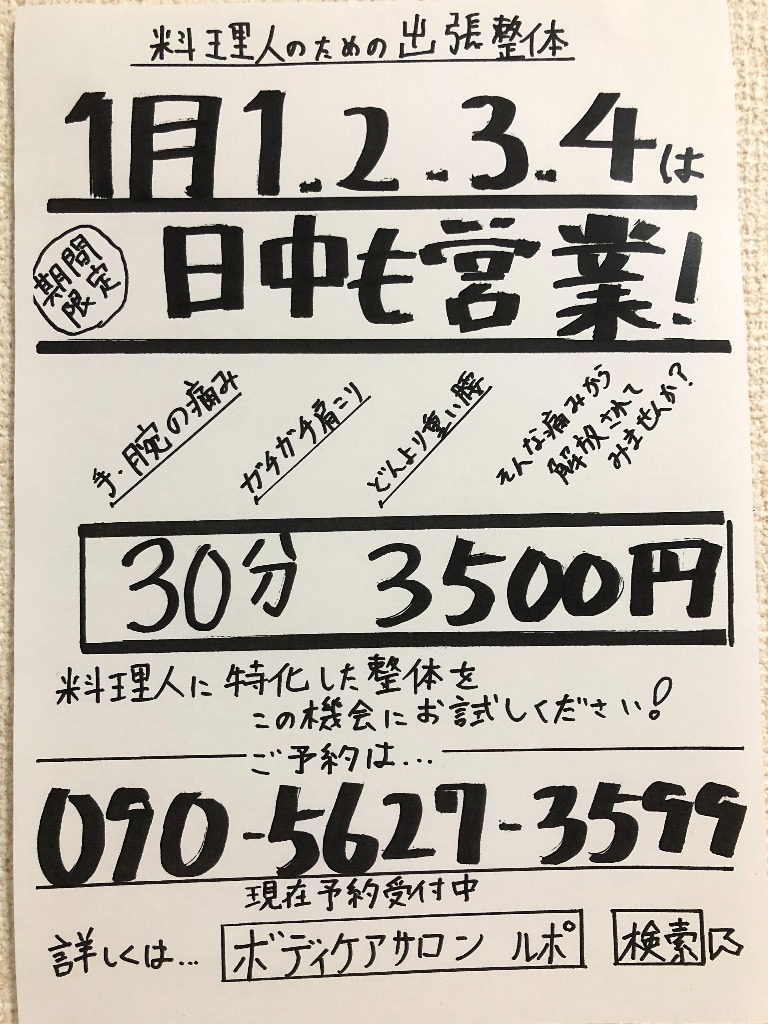 料理人のための出張整体
1月1.2.3.4は
期間
限定
日中も営業!
手・腕の痛み
ガチガチ肩こり
どんより重い腰
そんな痛みから
解放されて
みませんか?
30分 3500円
料理人に特化した整体を
この機会にお試しください!
ご予約は...
090-5627-3599
現在予約受付中
詳しくは... ボディケアサロン ルポ 検索